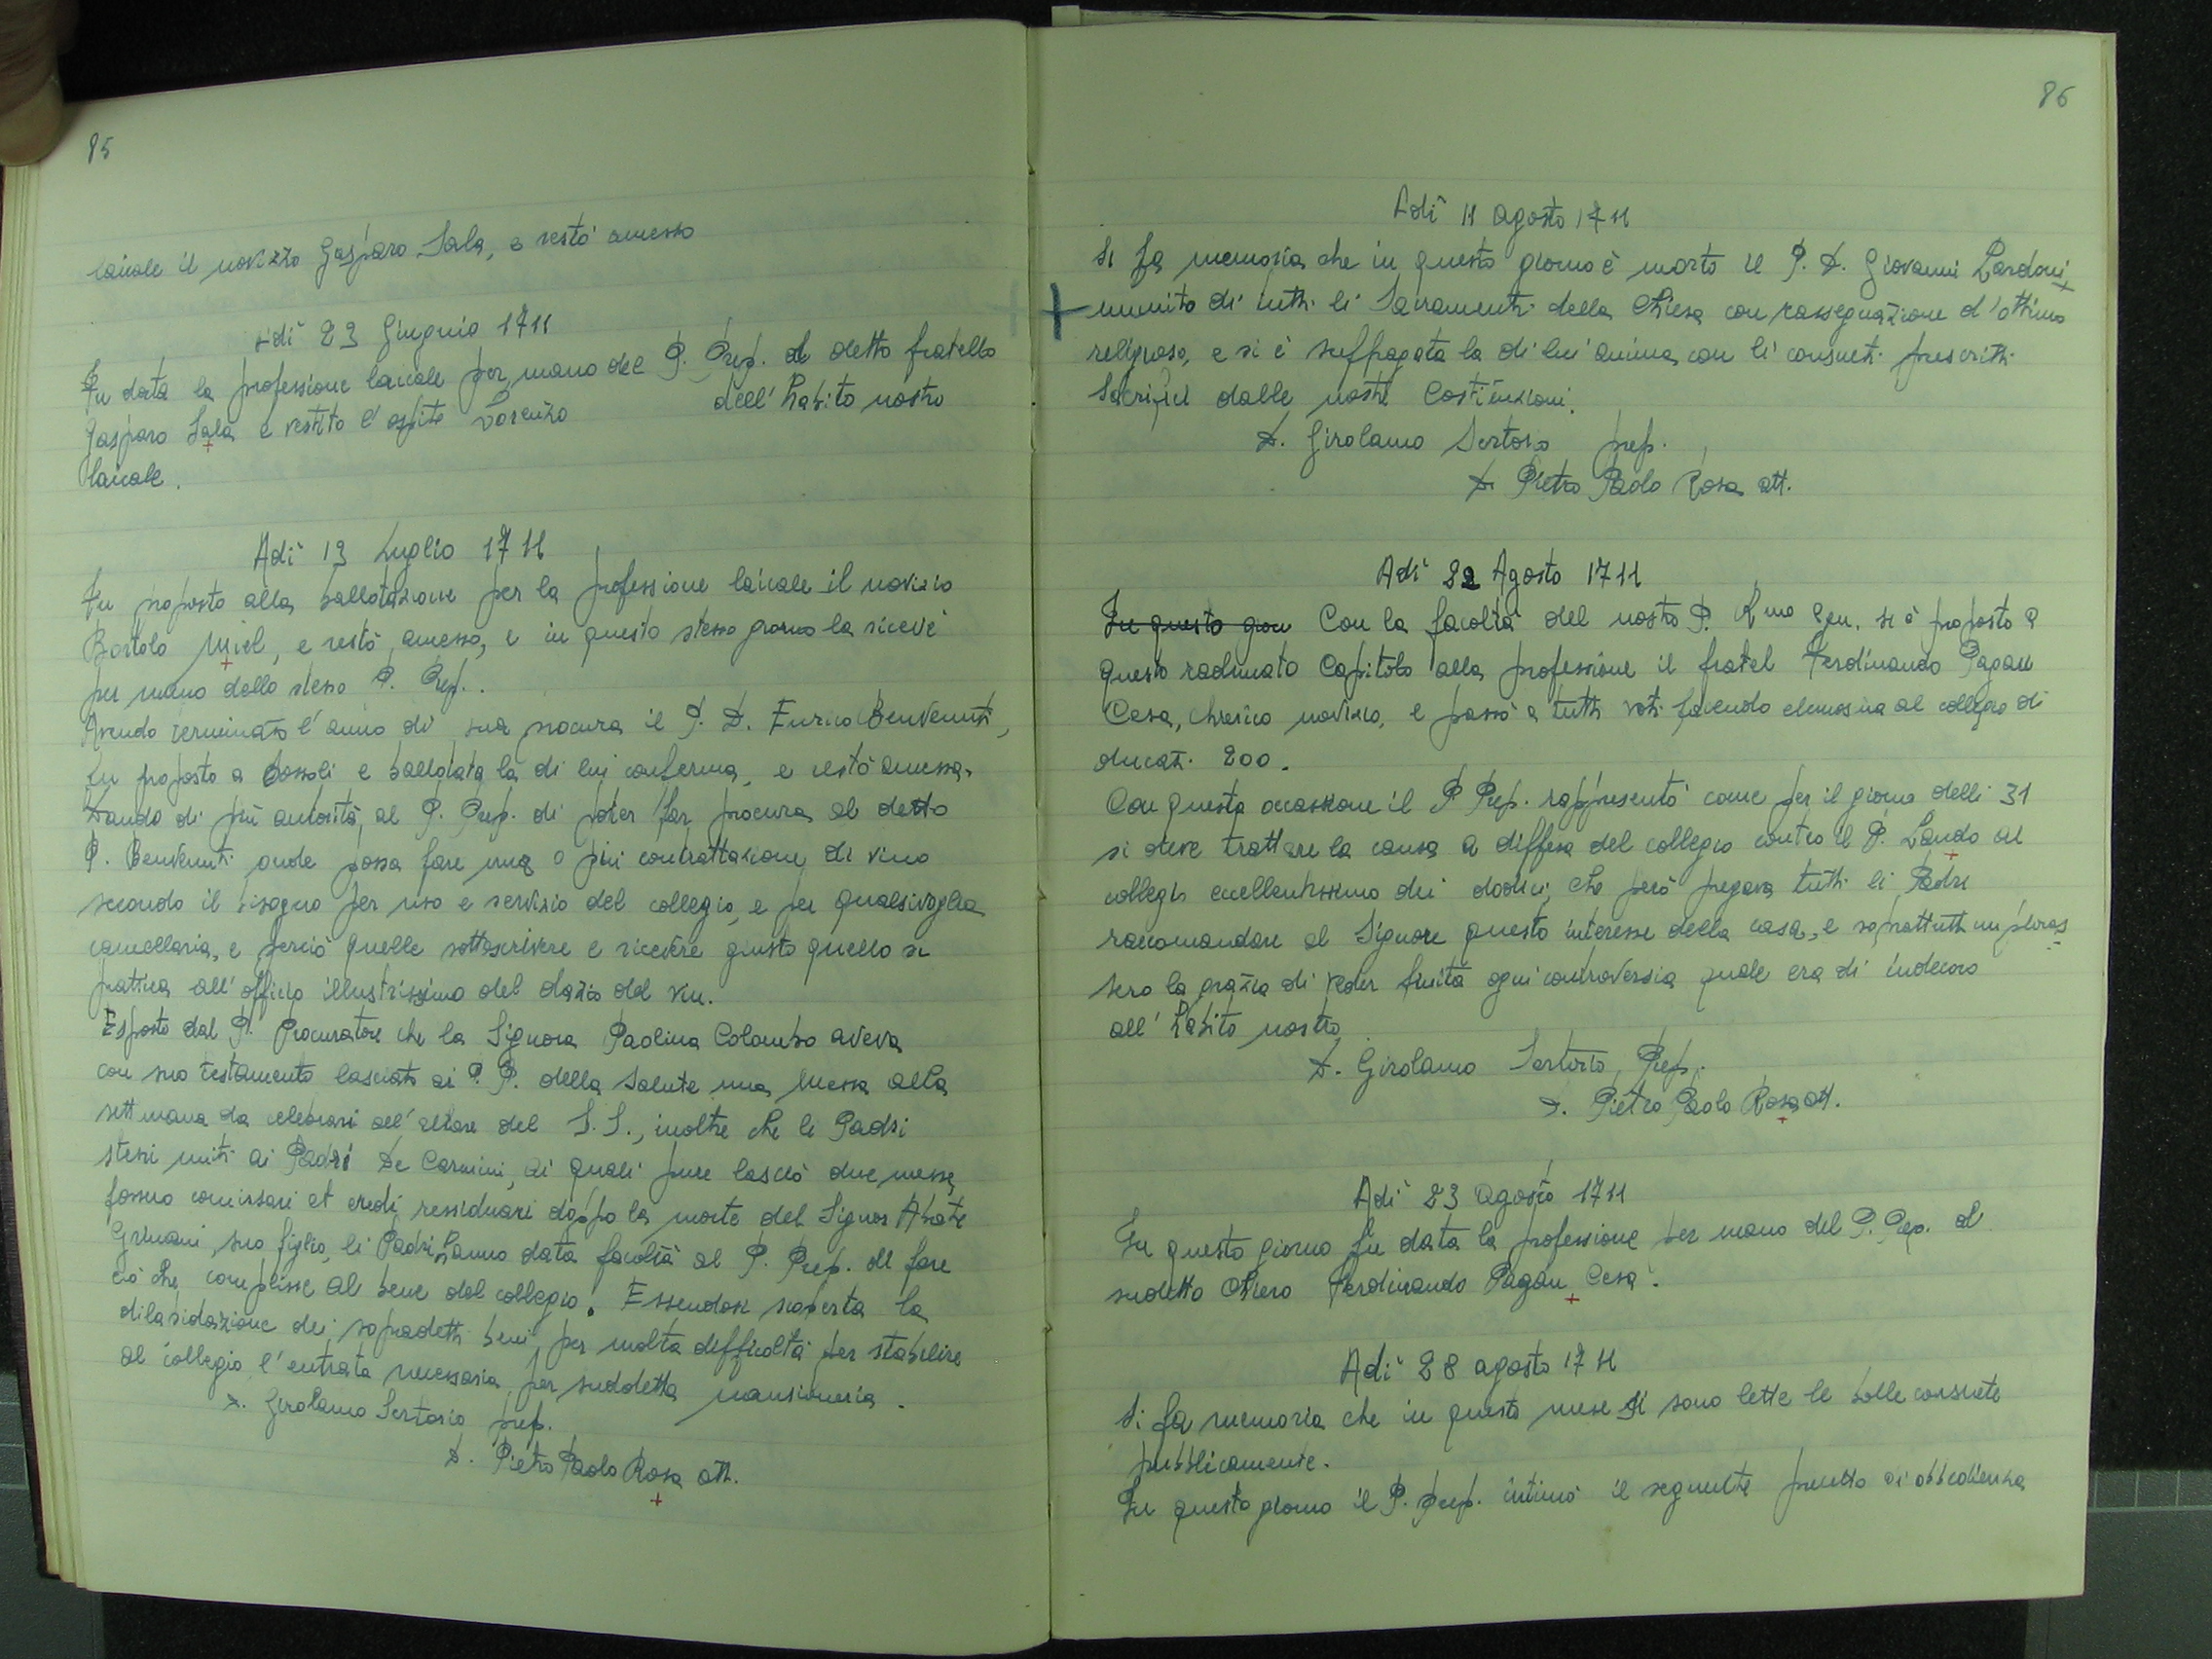 85
laicale il novizzo Gasparo Sala, e restò amesso
Adi 23 Giugnio 1711
Fu data la professione laicale per mano del P. Prep. al detto fratello
Gasparo Sala e vestito l'ospite Lorenzo dell'habito nostro
laicale.
Adi 13 Luglio 1711
Fu proposto alla ballotazione per la professione laicale il novizio
Bortolo Miel, e restò amesso, e in questo stesso giorno la ricevè
per mano dello stesso P. Prep..
Avendo terminato l'anno di sua procura il P. D. Enrico Benvenuti,
fu proposto a bossoli e ballotata la di lui conferma, e restò amessa.
Dando di più autorità al P. Prep. di poter far procura al detto
P. Benvenuti onde possa fare una o più contrattazione di vino
secondo il bisogno per uso e servizio del collegio, e per qualsivoglia
cancellaria, e perciò quelle sottoscrivere e ricevere giusto quello si
pattica all'officio illustrissimo del dazio del vin.
Esposto dal P. Procuratore che la Signora Paolina Colombo aveva
con suo testamento lasciato ai P. P. della Salute una Messa alla
settimana da celebrarsi all'altare del S.S., inoltre che li Padri
stessi uniti ai Padri De Carmini, ai quali pure lasciò due messe,
fossero comissari et eredi ressiduari doppo la morte del Signor Abate
Grimani, suo figlio, li Padri hanno data facoltà al P. Prep. di fare
ciò che complisse al bene del collegio. Essendosi scoperta la
dilapidazione dei sopradetti beni per molta difficoltà per stabilire
al collegio l'entrata necessaria per suddetta mansioneria.
D. Girolamo Sertorio prep.
D. Pietro Paolo Rosa att.
86
Adi 11 agosto 1711
Si fa memoria che in questo giorno è morto il P. D. Giovanni Zardoni
munito di tutti li Sacramenti della Chiesa con rassegnazione d'ottimo
religioso, e si è suffragata la di lui anima con li consueti prescritti
Sacrifici dalle nostre Costituzioni.
D. Girolamo Sertorio prep.
D. Pietro Paolo Rosa att.
Adi 22 Agosto 1711
In questo gior Con la facoltà del nostro P. R.mo Gen. si è proposto a
questo radunato Capitolo alla professione il fratel Ferdinando Pagan
Cesa, chierico novizio, e passò a tutti voti facendo elemosina al collegio di
ducati 200.
Con questa occasione il P. Prep. rappresentò come per il giorno delli 31
si deve trattare la causa a diffesa del collegio contro il P. Lando al
collegio eccellentissimo dei dodici, che però pregava tutti li Padri
raccomandare al Signore questo interesse della casa, e soprattutti imploras
sero la grazia di veder finita ogni controversia quale era di indecoro
all'habito nostro
D. Girolamo Sertorio, Prep.
D. Pietro Paolo Rosa att.
Adi 23 agosto 1711
In questo giorno fu data la professione per mano del P. Prep. al
sudetto Chierco Ferdinando Pagan Cesa.
Adi 28 agosto 1711
Si fa memoria che in questo mese si sono lette le bolle consuete
pubblicamente.
In questo giorno il P. Prep. intimò il seguente precetto di obbedienza